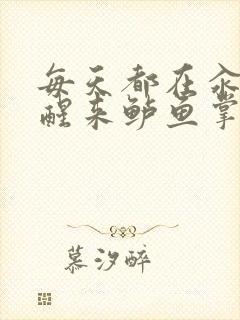 每天都在汆
醒来鲈鱼掌
慕汐醉